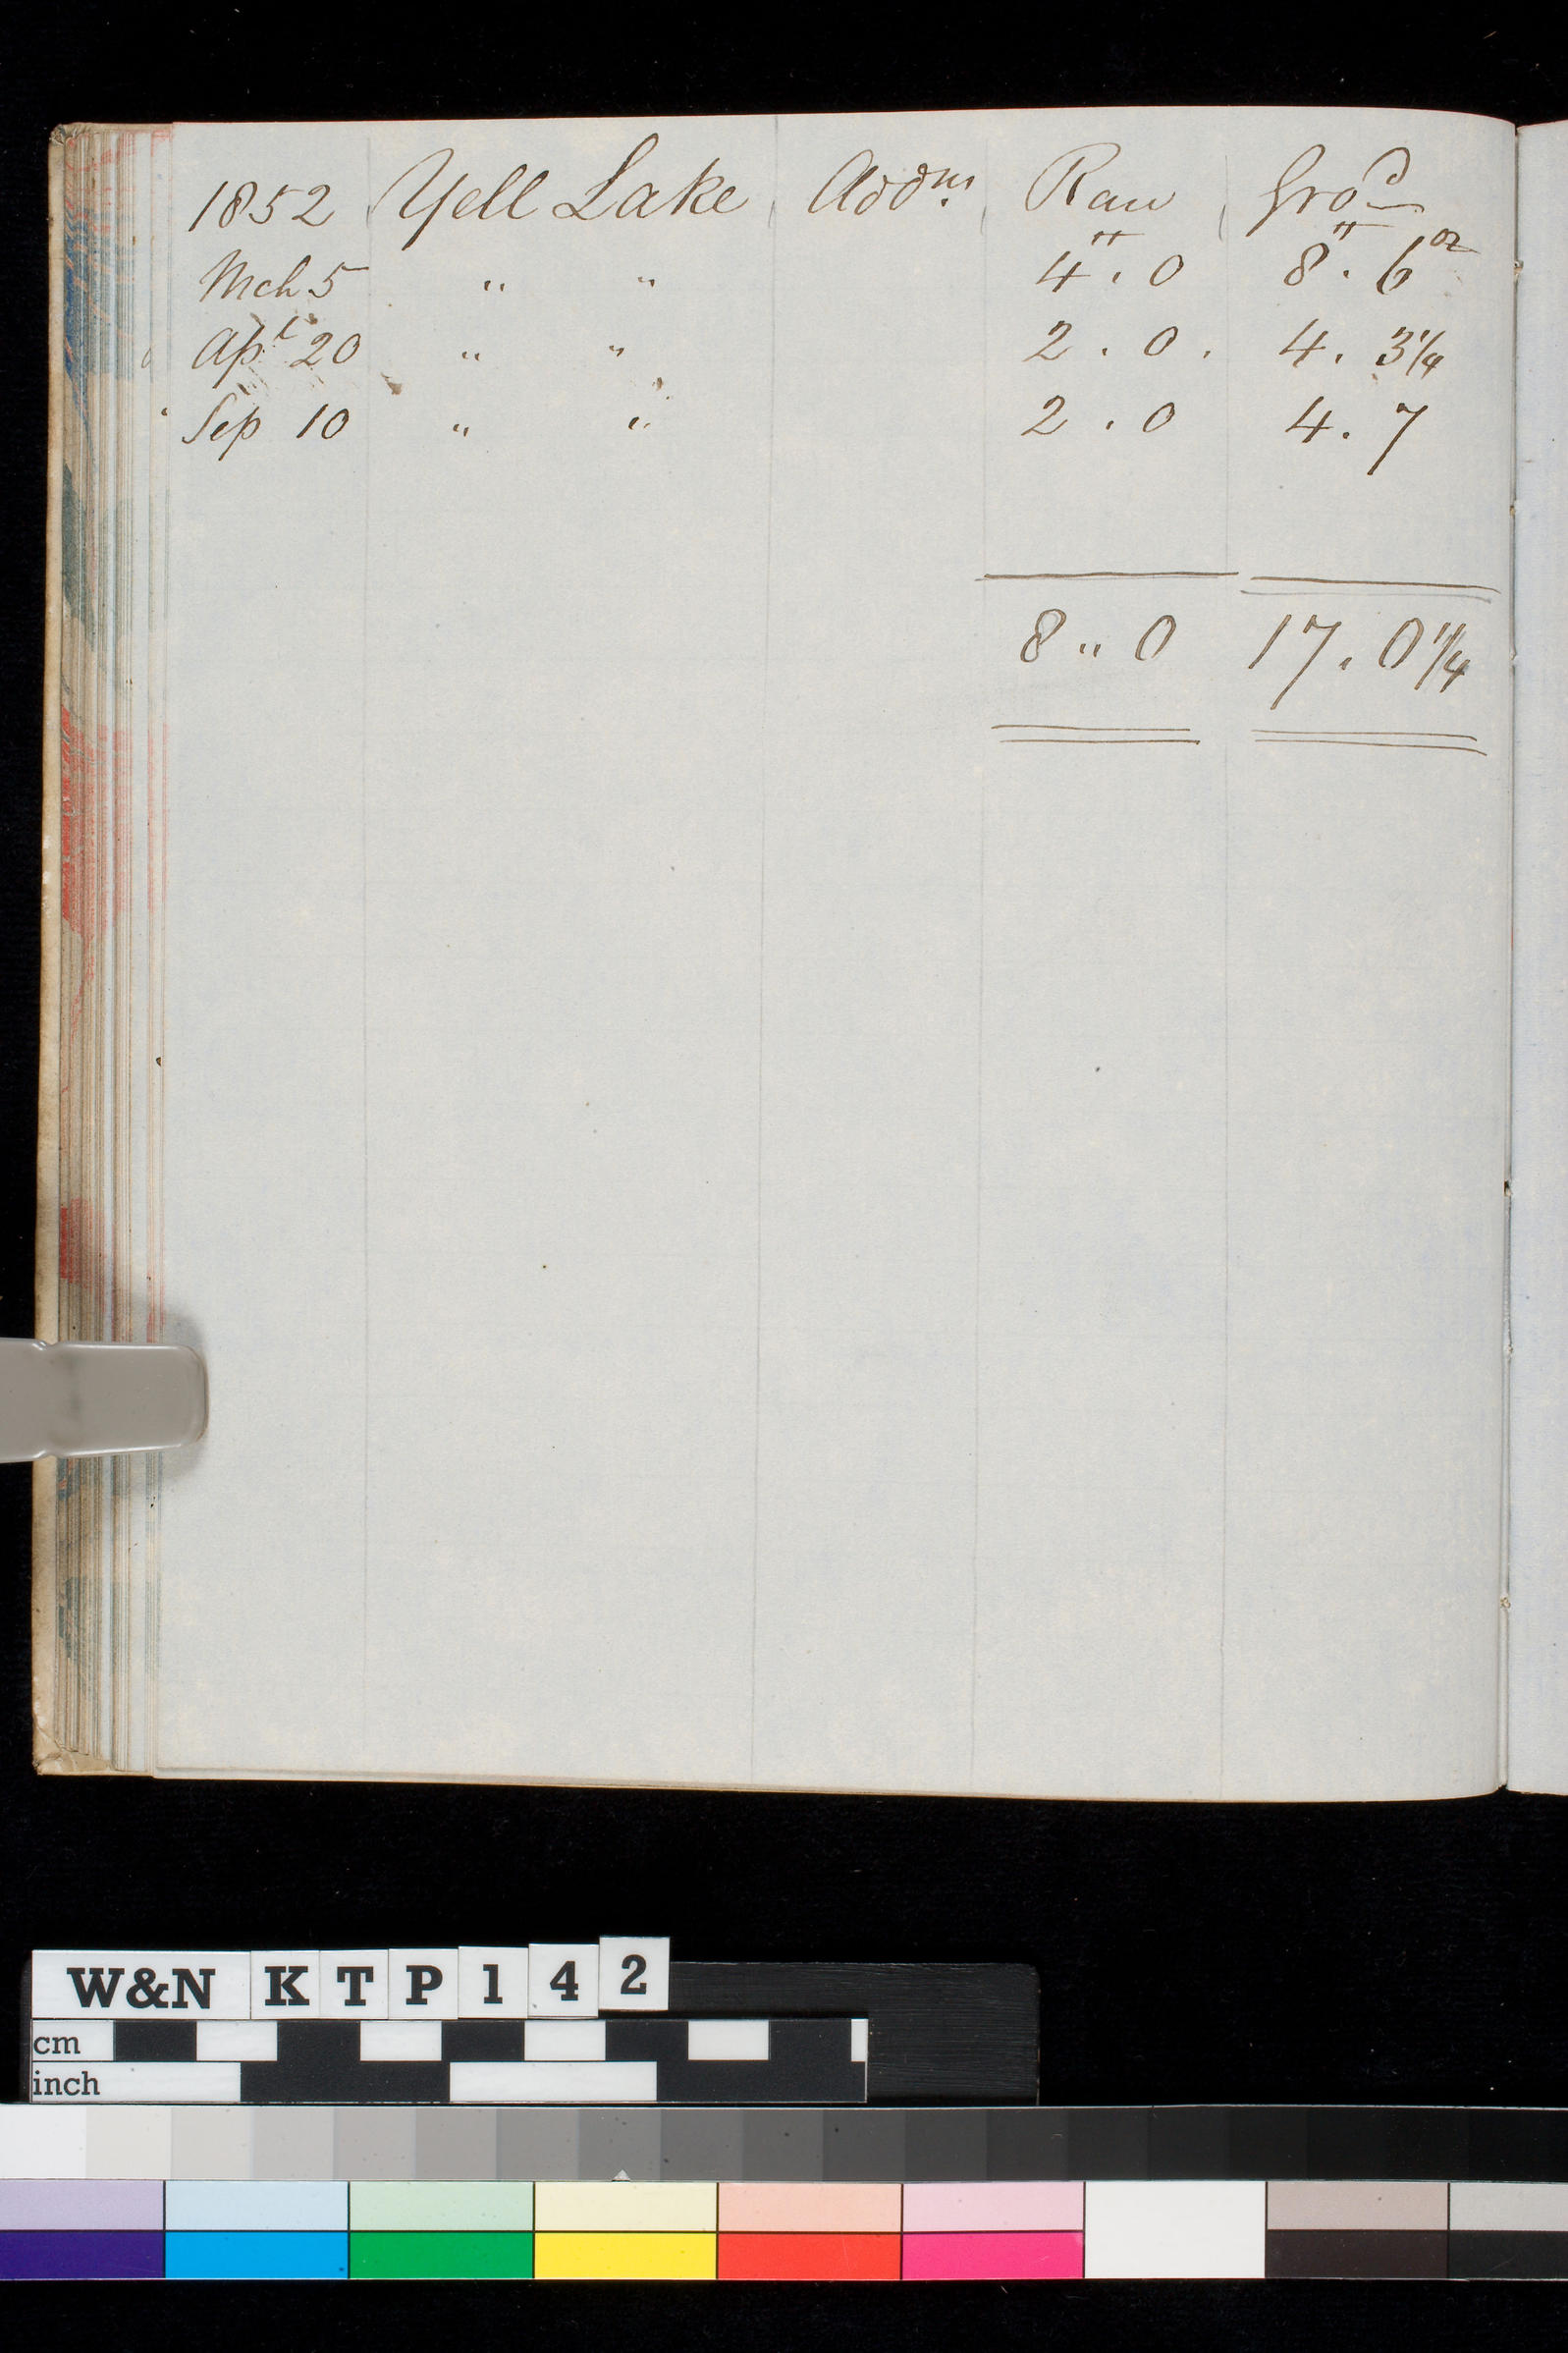 1852 Yell Lake Addns Raw Grod
Mch 5 " " 4 ᵗᵗ . 0 8 ᵗᵗ . 6 oz
Apl 20 " " 2 . 0 . 4 . 3 1/4
Sep 10 " " 2 . 0 4 . 7
8 " 0 17 . 0 1/4
W&N K T P 1 4 2
cm
inch